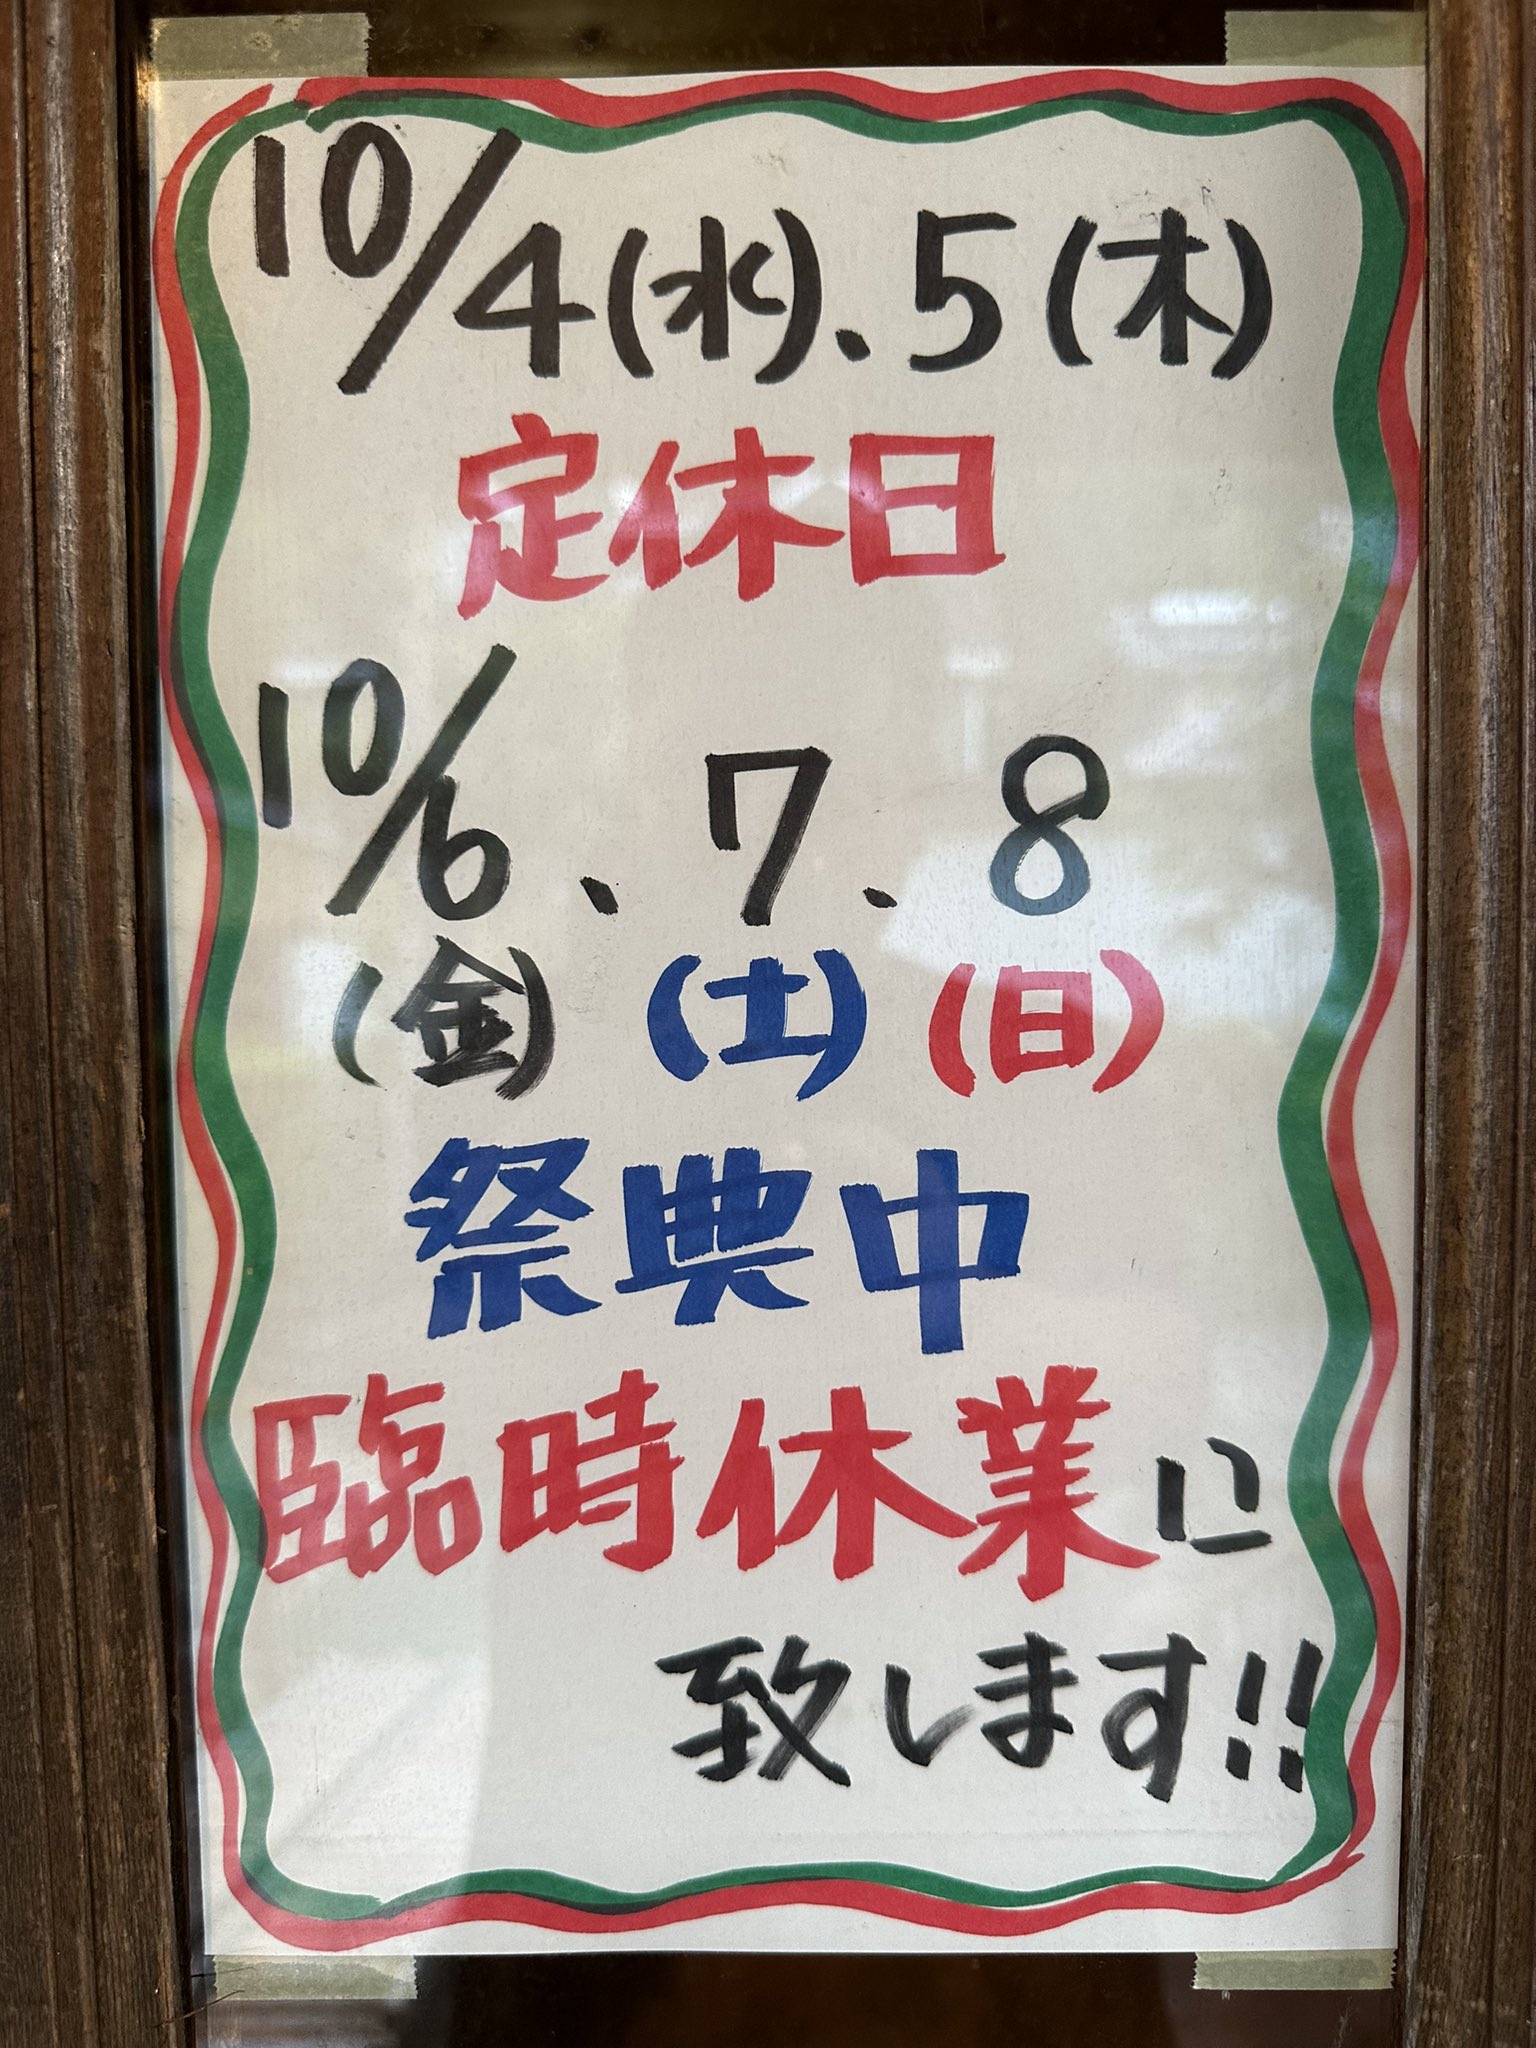 10/4(水)、5(木)
定休日
10/6、7、8
(金)(土)(日)
祭典中
臨時休業に
致します!!